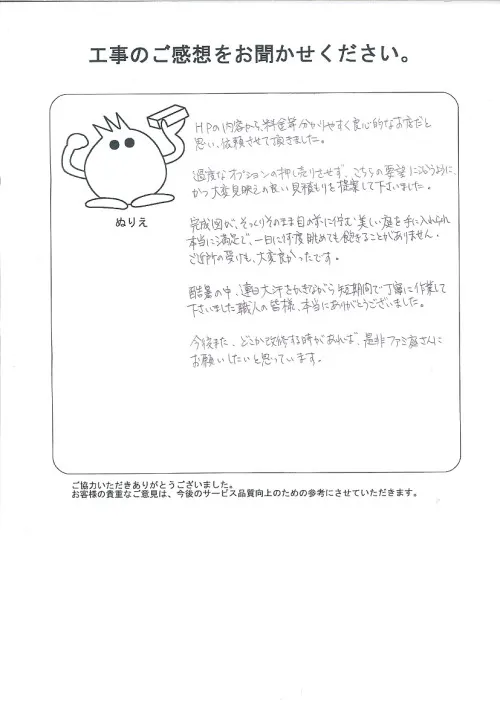 工事のご感想をお聞かせください。
ぬりえ
HPの内容から、料金等分かりやすく良心的なお店だと
思い、依頼させて頂きました。
過度なオプションの押し売りもせず、こちらの要望に沿うように、
かつ大変見映えの良い見積もりを提案して下さいました。
完成図が、そっくりそのまま目の前に佇む美しい庭を手に入れられ
本当に満足で、一日に何度眺めても飽きることがありません。
ご近所の受けも、大変良かったです。
酷暑の中、連日大汗をかきながら短期間で丁寧に作業して
下さいました職人の皆様、本当にありがとうございました。
今後また、どこか改修する時があれば、是非ファミ庭さんに
お願いしたいと思っています。
ご協力いただきありがとうございました。
お客様の貴重なご意見は、今後のサービス品質向上のための参考にさせていただきます。